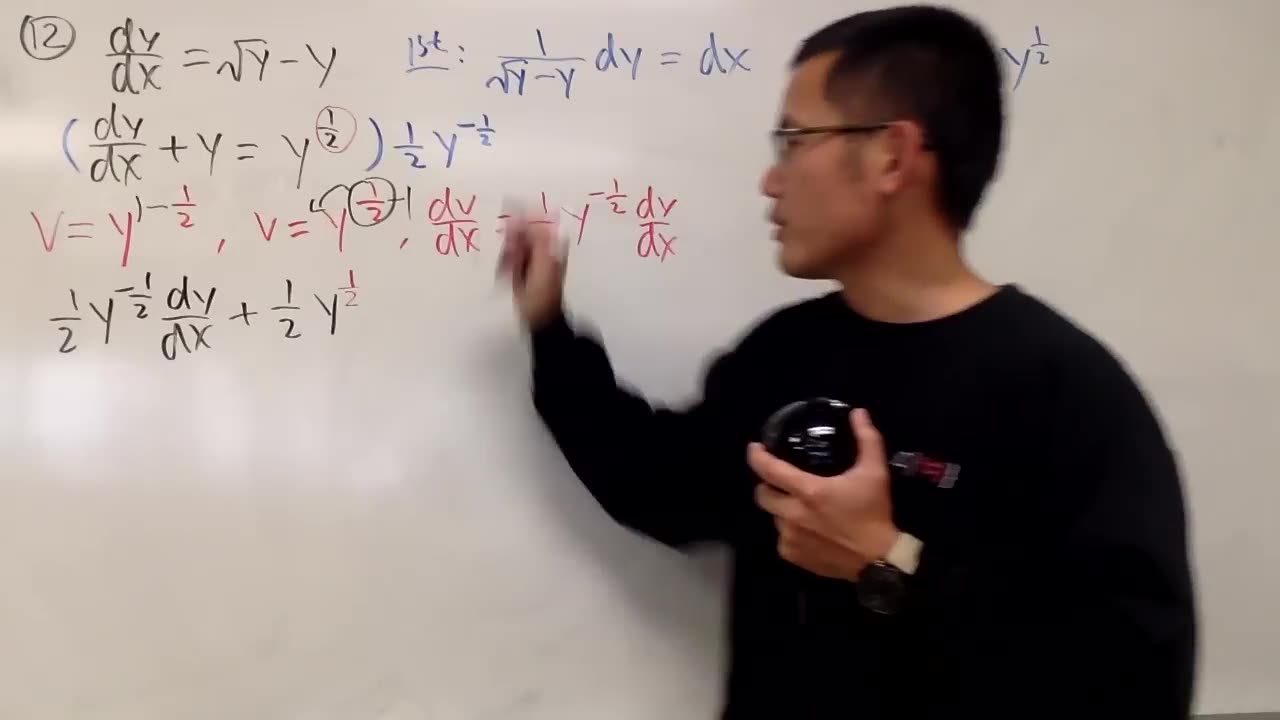 ⑫ dy/dx = √y - y 1st: 1/(√y - y) dy = dx y^(1/2)
(dy/dx + y = y^(1/2)) 1/2 y^(-1/2)
v = y^(1-1/2), v = y^(1/2) -1, dv/dx = 1/2 y^(-1/2) dy/dx
1/2 y^(-1/2) dy/dx + 1/2 y^(1/2)